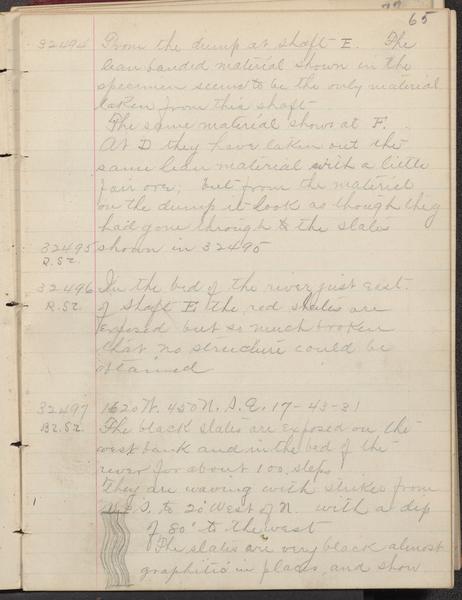 65
32494 From the dump at shaft E. The
lean banded material shown in the
specimen seems to be the only material
taken from this shaft
The same material shows at F.
At D they have taken out the
same lean material with a little
fair ore, but from the material
on the dump it look as though they
had gone through to the slates
32495 shown in 32495
R.Sl.
32496 In the bed of the river just east
R.Sl. of shaft E the red slates are
exposed but so much broken
that no structure could be
obtained
32497 1620 W. 450 N. S.E. 17-43-31
Bl.Sl. The black slates are exposed on the
west bank and in the bed of the
river for about 100 steps
They are waving with strikes from
N. & S. to 20° West of N. with a dip
of 80° to the west
The slates are very black almost
graphitic in places and show